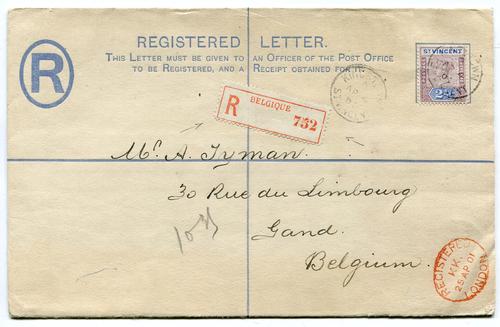 REGISTERED LETTER.
THIS LETTER MUST BE GIVEN TO AN OFFICER OF THE POST OFFICE
TO BE REGISTERED, AND A RECEIPT OBTAINED FOR IT.
R
ST VINCENT
BELGIQUE
R 752
Mr. A. Tyman.
30 Rue du Limbourg
Gand.
Belgium.
REGISTERED
25 AP 01
LONDON